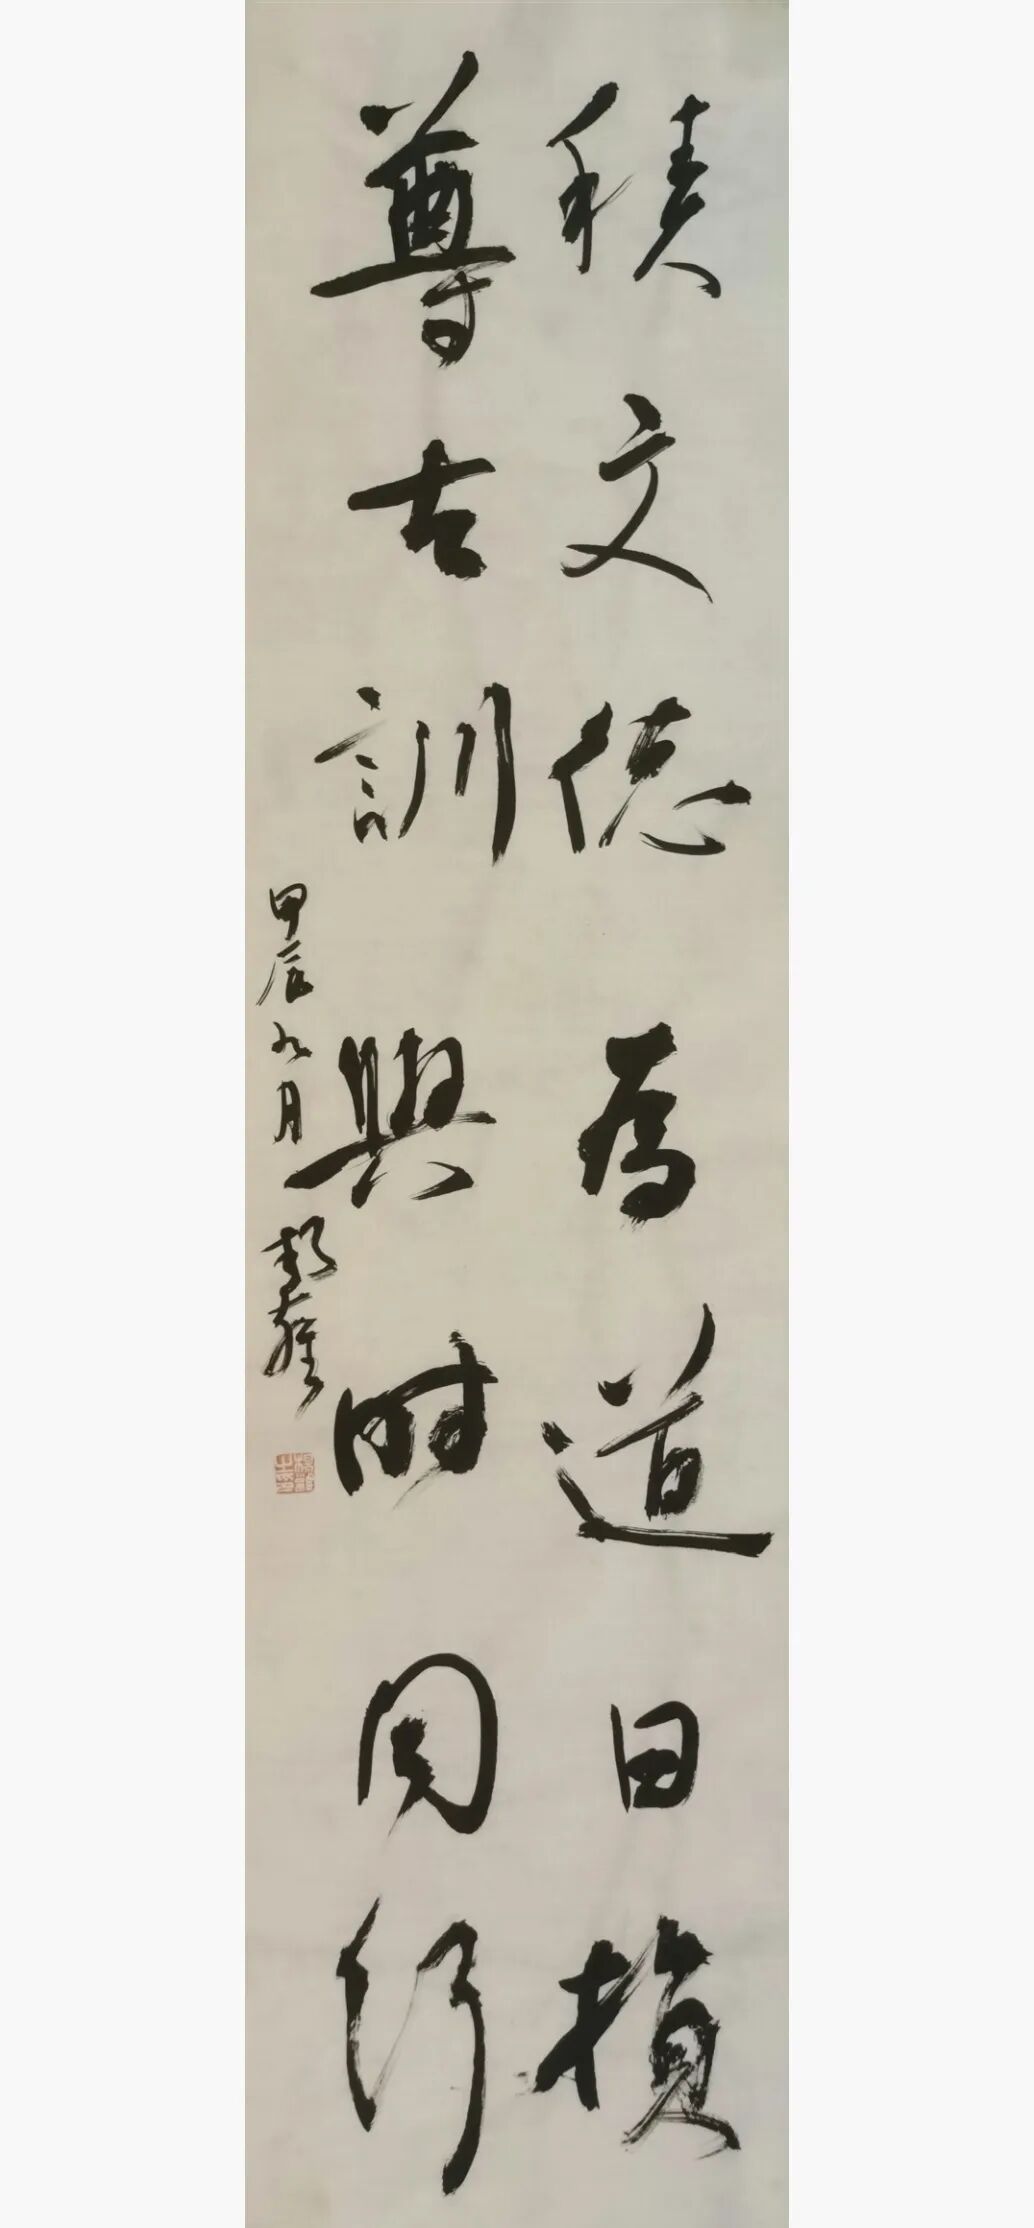 積文德為道日損
尊古訓與時同行
甲辰九月